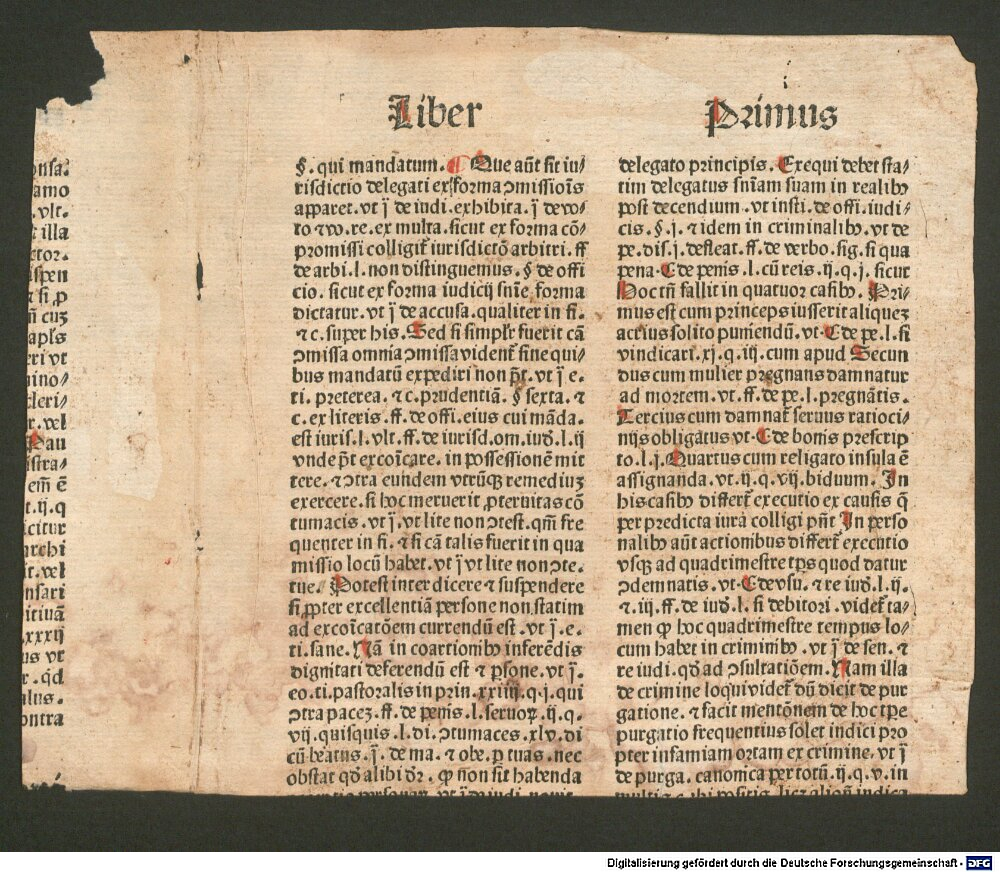 Liber Primus
onsa.
amo
. vlt.
t illa
ctor.
ispen
⁊ si ꝓ
n̄ cuꝫ
apl̄s
eri vt
nino⸗
cleri⸗
r. vel
Pau
istra⸗
em̄ ē
t.ij.q
icitur
archi
it.vel
nsari
itiuā
xxxij
us vt
r. qd̄
alus.
ontra
§. qui mandatum. ¶ Que aūt sit iu⸗
risdictio delegati ex forma ꝯmissiois̄
apparet. vt j̄ de iudi. exhibita. j̄ de vo⸗
to ⁊ vo. re. ex multa. sicut ex forma cō⸗
promissi colligit᷑ iurisdictō arbitri. ff
de arbi. l. non distinguemus. § de offi
cio. sicut ex forma iudicij sn̄ie forma
dictatur. vt j̄ de accusa. qualiter in fi.
⁊ c. super his. Sed si simpl̄r fuerit cā
ꝯmissa omnia ꝯmissa vident᷑ sine qui⸗
bus mandatū expediri non pn̄t. vt j̄ e.
ti. preterea. ⁊ c. prudentiā. § sexta. ⁊
c. ex literis. ff. de offi. eius cui māda.
est iuris. l. vlt. ff. de iurisd. om. iud̄. l. ij
vnde pn̄t excoīcare. in possessionē mit
tere. ⁊ ꝯtra eundem vtrūqꝫ remediuꝫ
exercere. si hoc meruerit ꝓteruitas cō
tumacis. vt j̄. vt lite non ꝯtest. qm̄ fre
quenter in fi. ⁊ si cā talis fuerit in qua
missio locū habet. vt j̄ vt lite non ꝯte.
tue. Potest inter dicere ⁊ suspendere
si ꝓpter excellentiā persone non statim
ad excoīcatōem currendū est. vt j̄. e.
ti. sane. Nā in coartionibꝰ inferēdis
dignitati deferendū est ⁊ ꝑsone. vt j̄.
eo. ti. pastoralis in prin. xxiiij. q. j. qui
ꝯtra paceꝫ. ff. de penis. l. seruoꝝ. ij. q.
vij. quisquis. l. di. ꝯtumaces. xlv. di
cū beatus. j̄. de ma. ⁊ obe. ꝑ tuas. nec
obstat qd̄ alibi dr̄. ꝙ non sit habenda
delegato principis. Exequi debet sta⸗
tim delegatus sn̄iam suam in realibꝰ
post decendium. vt insti. de offi. iudi⸗
cis. §. j. ⁊ idem in criminalibꝰ. vt de
pe. dis. j. defleat. ff. de verbo. sig. si qua
pena. C de penis. l. cū reis. ij. q. j. sicut
Hoc tn̄ fallit in quatuor casibꝰ. Pri⸗
mus est cum princeps iusserit aliqueꝫ
acrius solito puniendū. vt. C de pe. l. si
vindicari. xj. q. iij. cum apud Secun
dus cum mulier pregnans damnatur
ad mortem. vt. ff. de pe. l. pregnātis.
Tercius cum damnat᷑ seruus ratioci⸗
nijs obligatus vt. C de bonis prescrip
to. l. j. Quartus cum religato insula ē
assignanda. vt. ij. q. vij. biduum. In
his casibꝰ differt᷑ executio ex causis q̄
per predicta iura colligi pn̄t In perso
nalibꝰ aūt actionibus differt᷑ executio
vsqꝫ ad quadrimestre tps quod datur
ꝯdemnatis. vt. C de vsu. ⁊ re iud̄. l. ij.
⁊. iij. ff. de iud̄. l. si debitori. videt᷑ ta⸗
men ꝙ hoc quadrimestre tempus lo⸗
cum habet in criminibꝰ. vt j̄ de sen. ⁊
re iudi. qd̄ ad ꝯsultatiōem. Nam illa
de crimine loqui videt᷑ dū dicit de pur
gatione. ⁊ facit mentōnem de hoc tp̄e
purgatio frequentius solet indici pro
pter infamiam ortam ex crimine. vt j̄
de purga. canonica per totū. ij. q. v. in
Digitalisierung gefördert durch die Deutsche Forschungsgemeinschaft - DFG